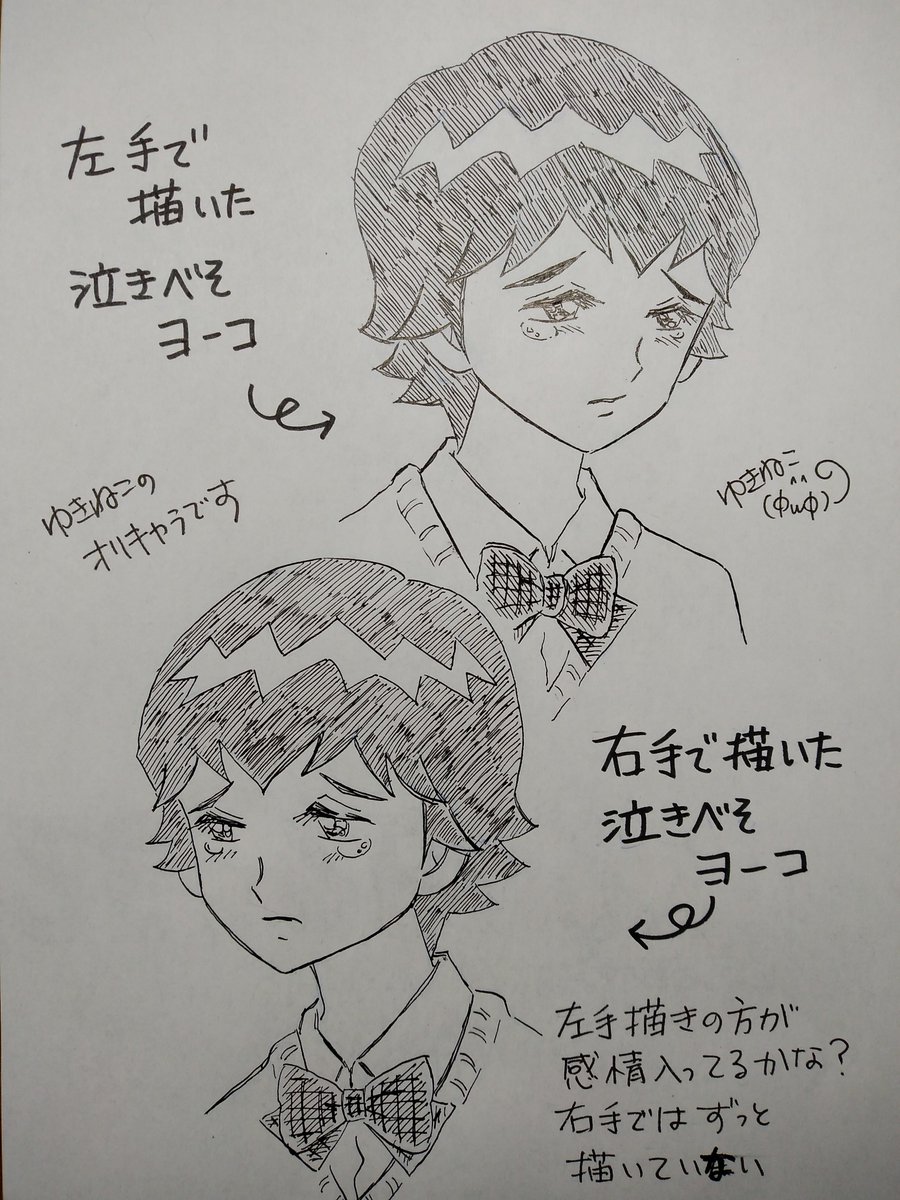 左手で
描いた
泣きべそ
ヨーコ
ゆきねこの
オリキャラです
ゆきねこ
(ΦωΦ)
右手で描いた
泣きべそ
ヨーコ
左手描きの方が
感情入ってるかな?
右手では ずっと
描いていない